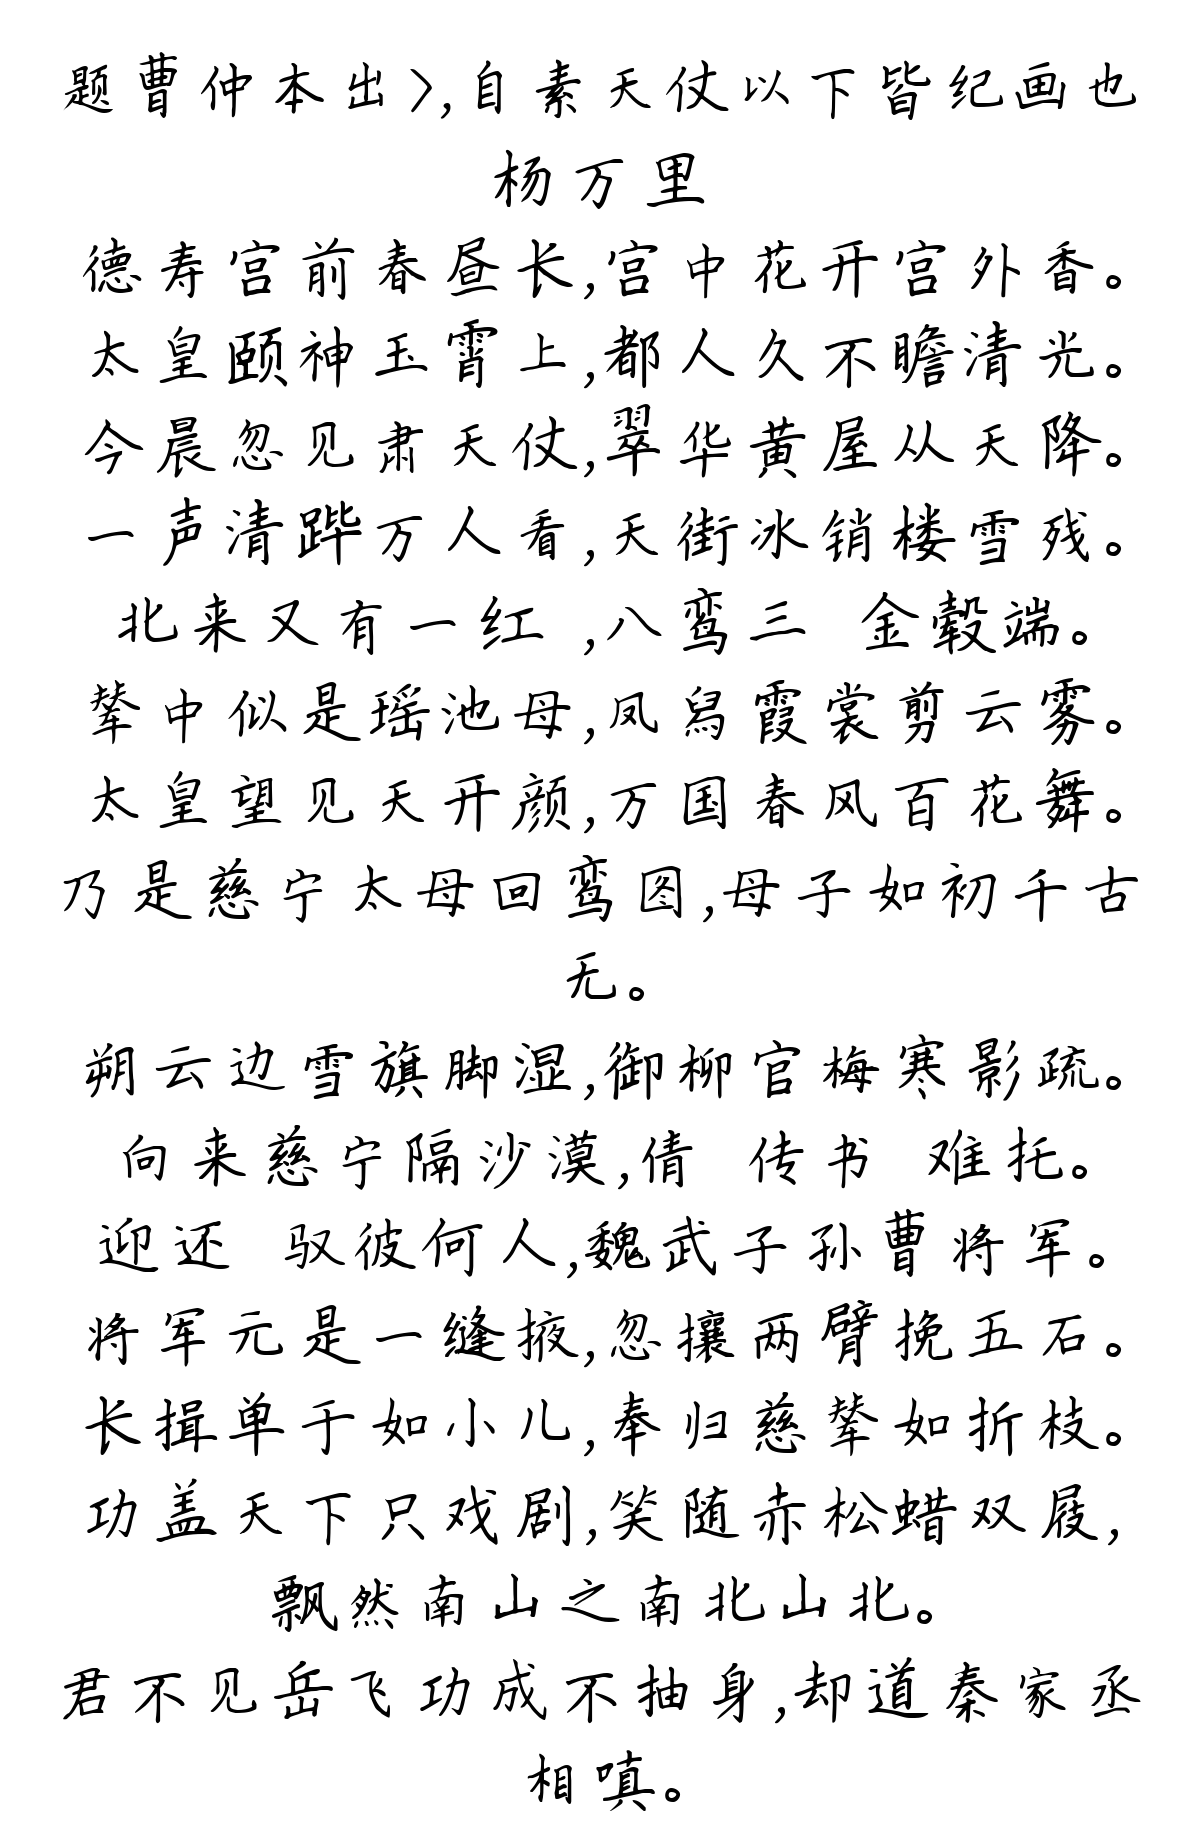 题曹仲本出>,自素天仗以下皆纪画也
杨万里
德寿宫前春昼长,宫中花开宫外香。
太皇颐神玉霄上,都人久不瞻清光。
今晨忽见肃天仗,翠华黄屋从天降。
一声清跸万人看,天街冰销楼雪残。
北来又有一红 ,八鸾三 金毂端。
辇中似是瑶池母,凤舄霞裳剪云雾。
太皇望见天开颜,万国春风百花舞。
乃是慈宁太母回鸾图,母子如初千古
无。
朔云边雪旗脚湿,御柳官梅寒影疏。
向来慈宁隔沙漠,倩 传书 难托。
迎还 驭彼何人,魏武子孙曹将军。
将军元是一缝掖,忽攘两臂挽五石。
长揖单于如小儿,奉归慈辇如折枝。
功盖天下只戏剧,笑随赤松蜡双屐,
飘然南山之南北山北。
君不见岳飞功成不抽身,却道秦家丞
相嗔。